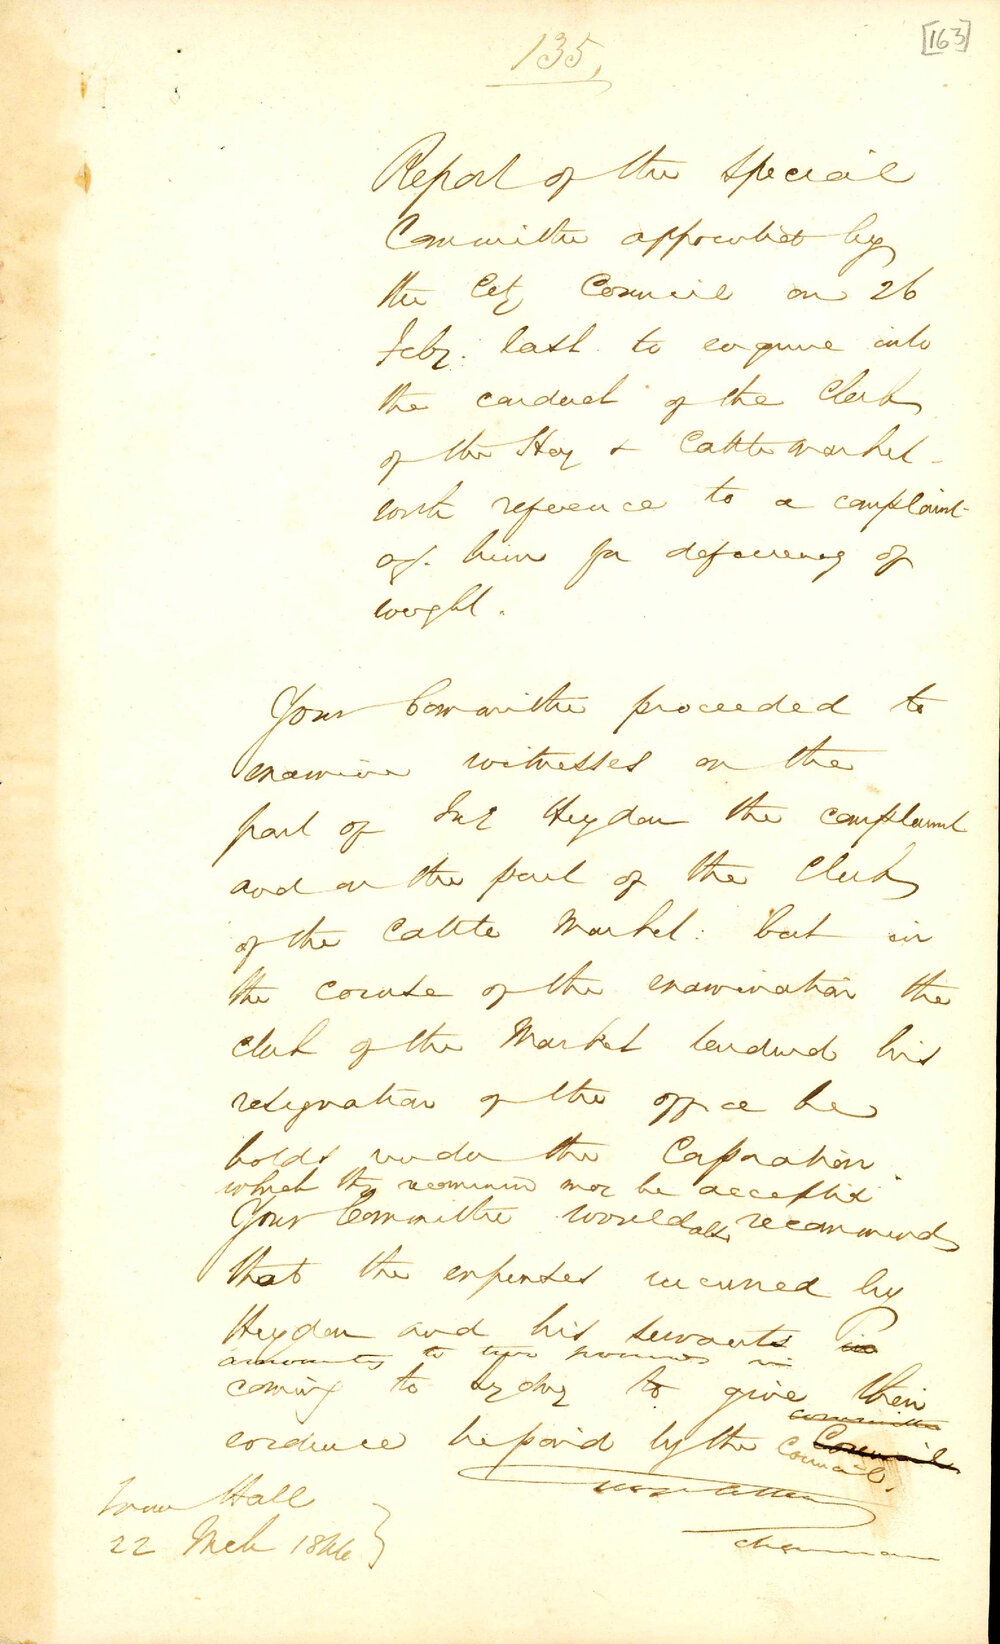 [163]
135,
Report of the Special
Committee appointed by
the City Council on 26
Feby. last to enquire into
the conduct of the Clerk
of the Hay & Cattle Market -
with reference to a complaint
ag. him for deficiency of
weight.
Your Committee proceeded to
examine witnesses on the
part of Heydon the complaint
and on the part of the Clerk
of the Cattle Market: but in
the course of the examination the
clerk of the Market tendered his
resignation of the office he
holds under the Corporation
which they recommend may be accepted
Your Committee would also recommend
that the expenses incurred by
Heydon and his servants in
amounting to two pounds in
coming to Sydney to give their
committee
evidence be paid by the Council
Council.
Town Hall
22 Mch 1846
Chairman